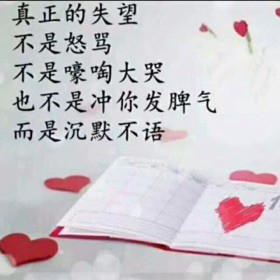 真正的失望
不是怒骂
不是嚎啕大哭
也不是冲你发脾气
而是沉默不语